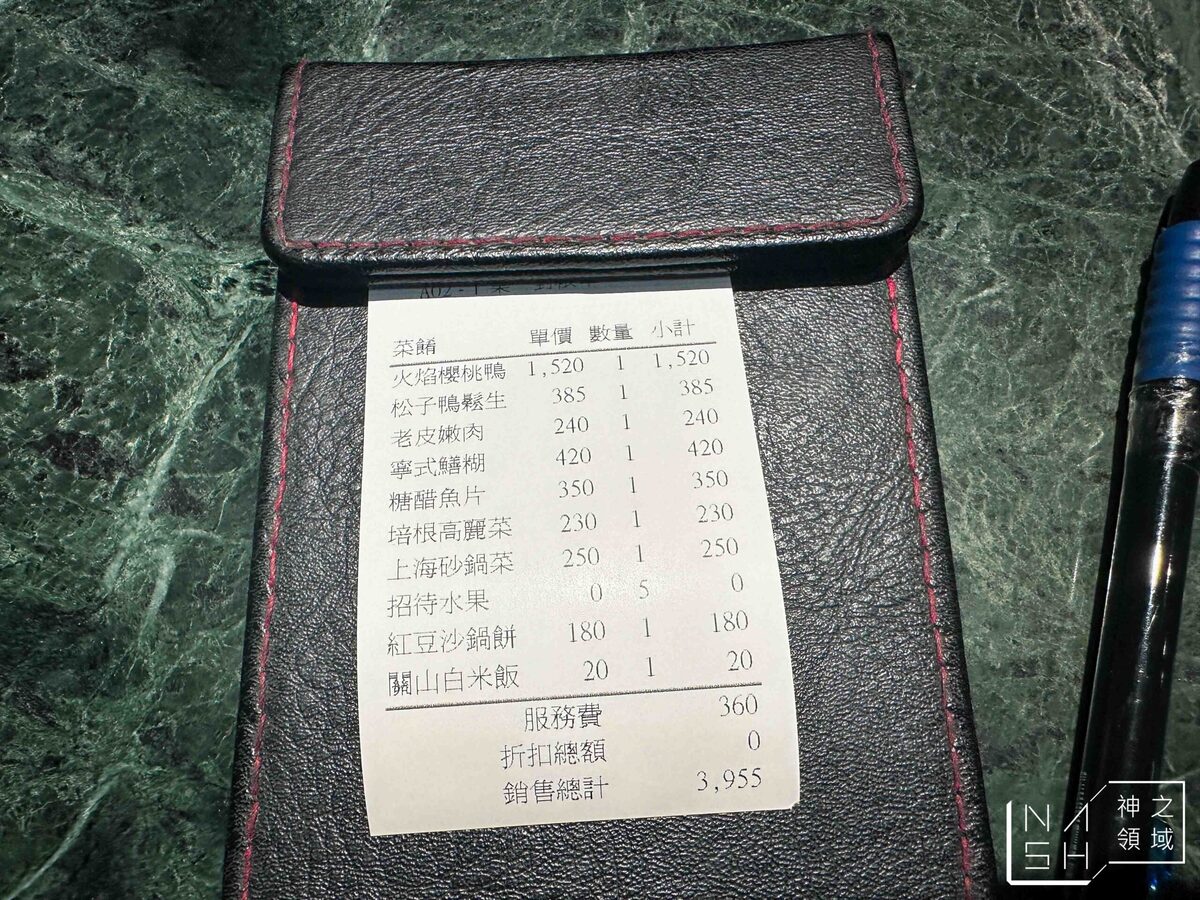 菜餚 單價 數量 小計
火焰櫻桃鴨 1,520 1 1,520
松子鴨鬆生 385 1 385
老皮嫩肉 240 1 240
寧式鱔糊 420 1 420
糖醋魚片 350 1 350
培根高麗菜 230 1 230
上海砂鍋菜 250 1 250
招待水果 0 5 0
紅豆沙鍋餅 180 1 180
關山白米飯 20 1 20
服務費 360
折扣總額 0
銷售總計 3,955
NASH
神之
領域